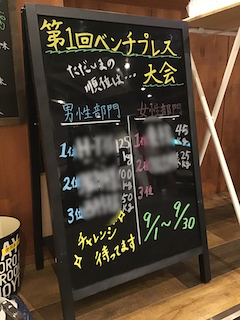 第1回ベンチプレス
大会
ただいまの
順位は…
男性部門
1位 125kg
2位 100kg
3位 50kg
女性部門
1位 45kg
2位 25kg
3位
チャレンジ
待ってます
9/1～9/30